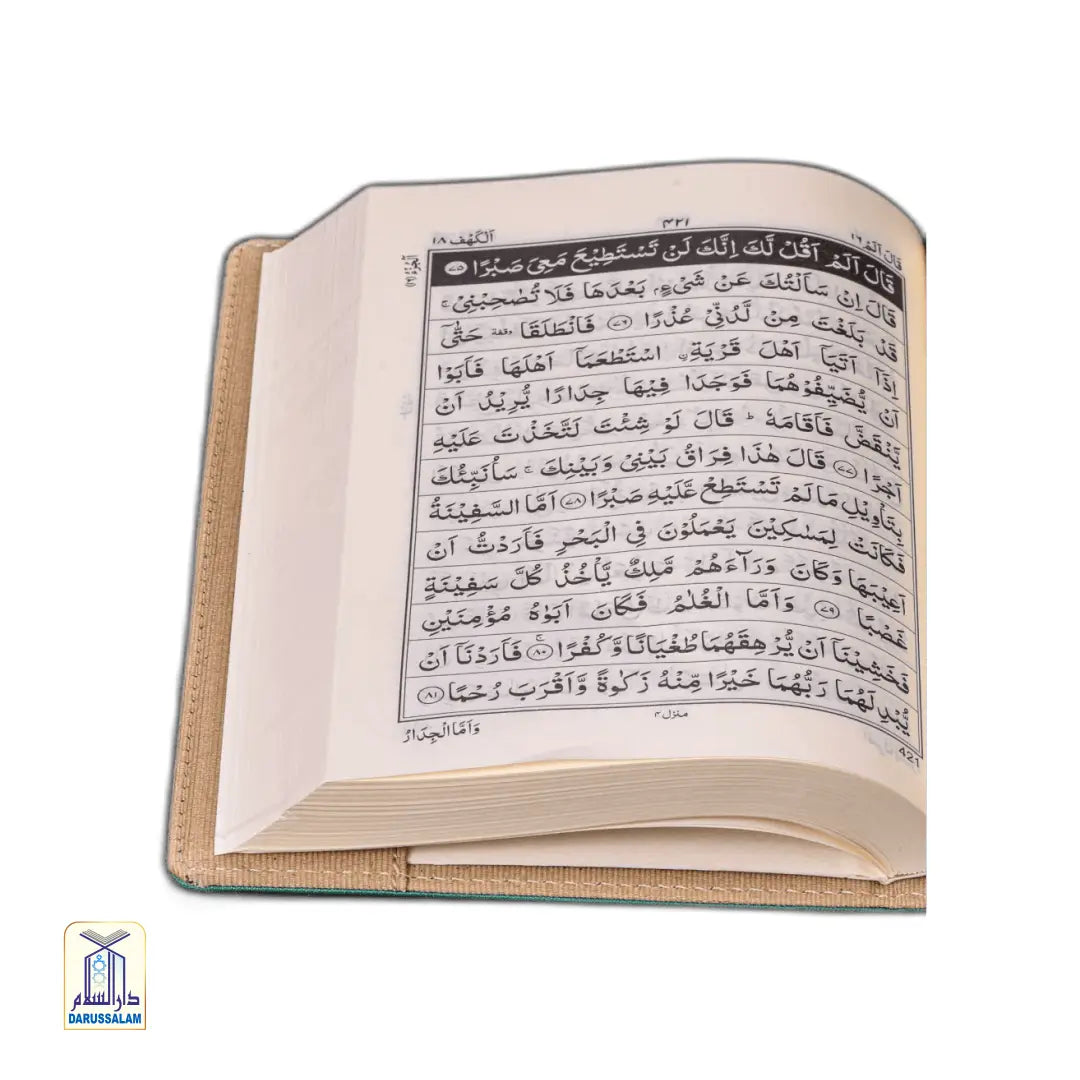 قَالَ اَلَمۡ ١٦
۴۲۱
اَلۡكَهۡف ١٨
اَلۡجُزۡءُ (١٦)
قَالَ اَلَمۡ اَقُلۡ لَّكَ اِنَّكَ لَنۡ تَسۡتَطِيۡعَ مَعِىَ صَبۡرًا ﴿۷۵﴾
قَالَ اِنۡ سَاَلۡتُكَ عَنۡ شَىۡءٍۢ بَعۡدَهَا فَلَا تُصٰحِبۡنِىۡ‌ ۚ
قَدۡ بَلَغۡتَ مِنۡ لَّدُنِّىۡ عُذۡرًا ﴿۷۶﴾ فَانْطَلَقَا وقفة حَتّٰٓى
اِذَاۤ اَتَيَاۤ اَهۡلَ قَرۡيَةِ ۨ اسۡتَطۡعَمَاۤ اَهۡلَهَا فَاَبَوۡا
اَنۡ يُّضَيِّفُوۡهُمَا فَوَجَدَا فِيۡهَا جِدَارًا يُّرِيۡدُ اَنۡ
يَّنۡقَضَّ فَاَقَامَهٗ‌ ؕ قَالَ لَوۡ شِئۡتَ لَـتَّخَذۡتَ عَلَيۡهِ
اَجۡرًا ﴿۷۷﴾ قَالَ هٰذَا فِرَاقُ بَيۡنِىۡ وَبَيۡنِكَ‌ ۚ سَاُنَـبِّئُكَ
بِتَاۡوِيۡلِ مَا لَمۡ تَسۡتَطِعْ عَّلَيۡهِ صَبۡرًا ﴿۷۸﴾ اَمَّا السَّفِيۡنَةُ
فَكَانَتۡ لِمَسٰكِيۡنَ يَعۡمَلُوۡنَ فِى الۡبَحۡرِ فَاَرَدْتُّ اَنۡ
اَعِيۡبَهَا وَكَانَ وَرَآءَهُمۡ مَّلِكٌ يَّاۡخُذُ كُلَّ سَفِيۡنَةٍ
غَصۡبًا ﴿۷۹﴾ وَاَمَّا الۡغُلٰمُ فَكَانَ اَبَوٰهُ مُؤۡمِنَيۡنِ
فَخَشِيۡنَاۤ اَنۡ يُّرۡهِقَهُمَا طُغۡيَانًا وَّكُفۡرًا‌ ۚ ﴿۸۰﴾ فَاَرَدۡنَاۤ اَنۡ
يُّبۡدِلَهُمَا رَبُّهُمَا خَيۡرًا مِّنۡهُ زَكٰوةً وَّاَقۡرَبَ رُحۡمًا ﴿۸۱﴾
منزل ۴
وَاَمَّا الۡجِدَارُ
421
دار السلام
DARUSSALAM